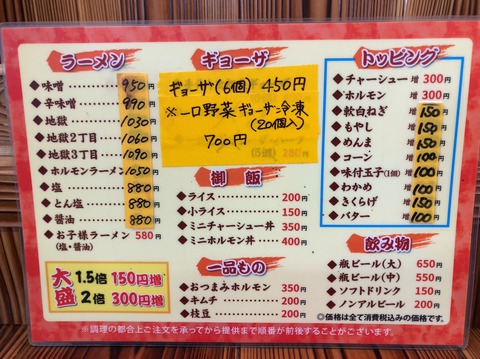 ラーメン
◆味噌 950円
◆辛味噌 990円
◆地獄 1030円
◆地獄2丁目 1060円
◆地獄3丁目 1090円
◆ホルモンラーメン 1050円
◆塩 880円
◆とん塩 880円
◆醤油 880円
◆お子様ラーメン 580円
(塩・醤油)
大盛 1.5倍 150円増
2倍 300円増
ギョーザ
ギョーザ(6個) 450円
※一口野菜ギョーザ冷凍
(20個入)
700円
御飯
◆ライス 200円
◆小ライス 150円
◆ミニチャーシュー丼 350円
◆ミニホルモン丼 400円
一品もの
◆おつまみホルモン 350円
◆キムチ 200円
◆枝豆 200円
トッピング
◆チャーシュー 増300円
◆ホルモン 増300円
◆軟白ねぎ 増150円
◆もやし 増150円
◆めんま 増150円
◆コーン 増100円
◆味付玉子(1個) 増100円
◆わかめ 増100円
◆きくらげ 増150円
◆バター 増100円
飲み物
◆瓶ビール(大) 650円
◆瓶ビール(中) 550円
◆ソフトドリンク 150円
◆ノンアルビール 200円
◎価格は全て消費税込みの価格です。
※調理の都合上ご注文を承ってから提供まで順番が前後することがございます。